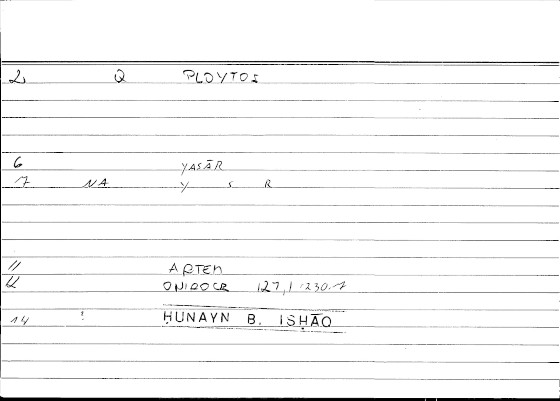 2 Q PLOYTOS
6 YASĀR
7 NA Y S R
11 ARTEM
12 ONIROCR 127,1 230.7
14 ! ḤUNAYN B. ISḤĀQ